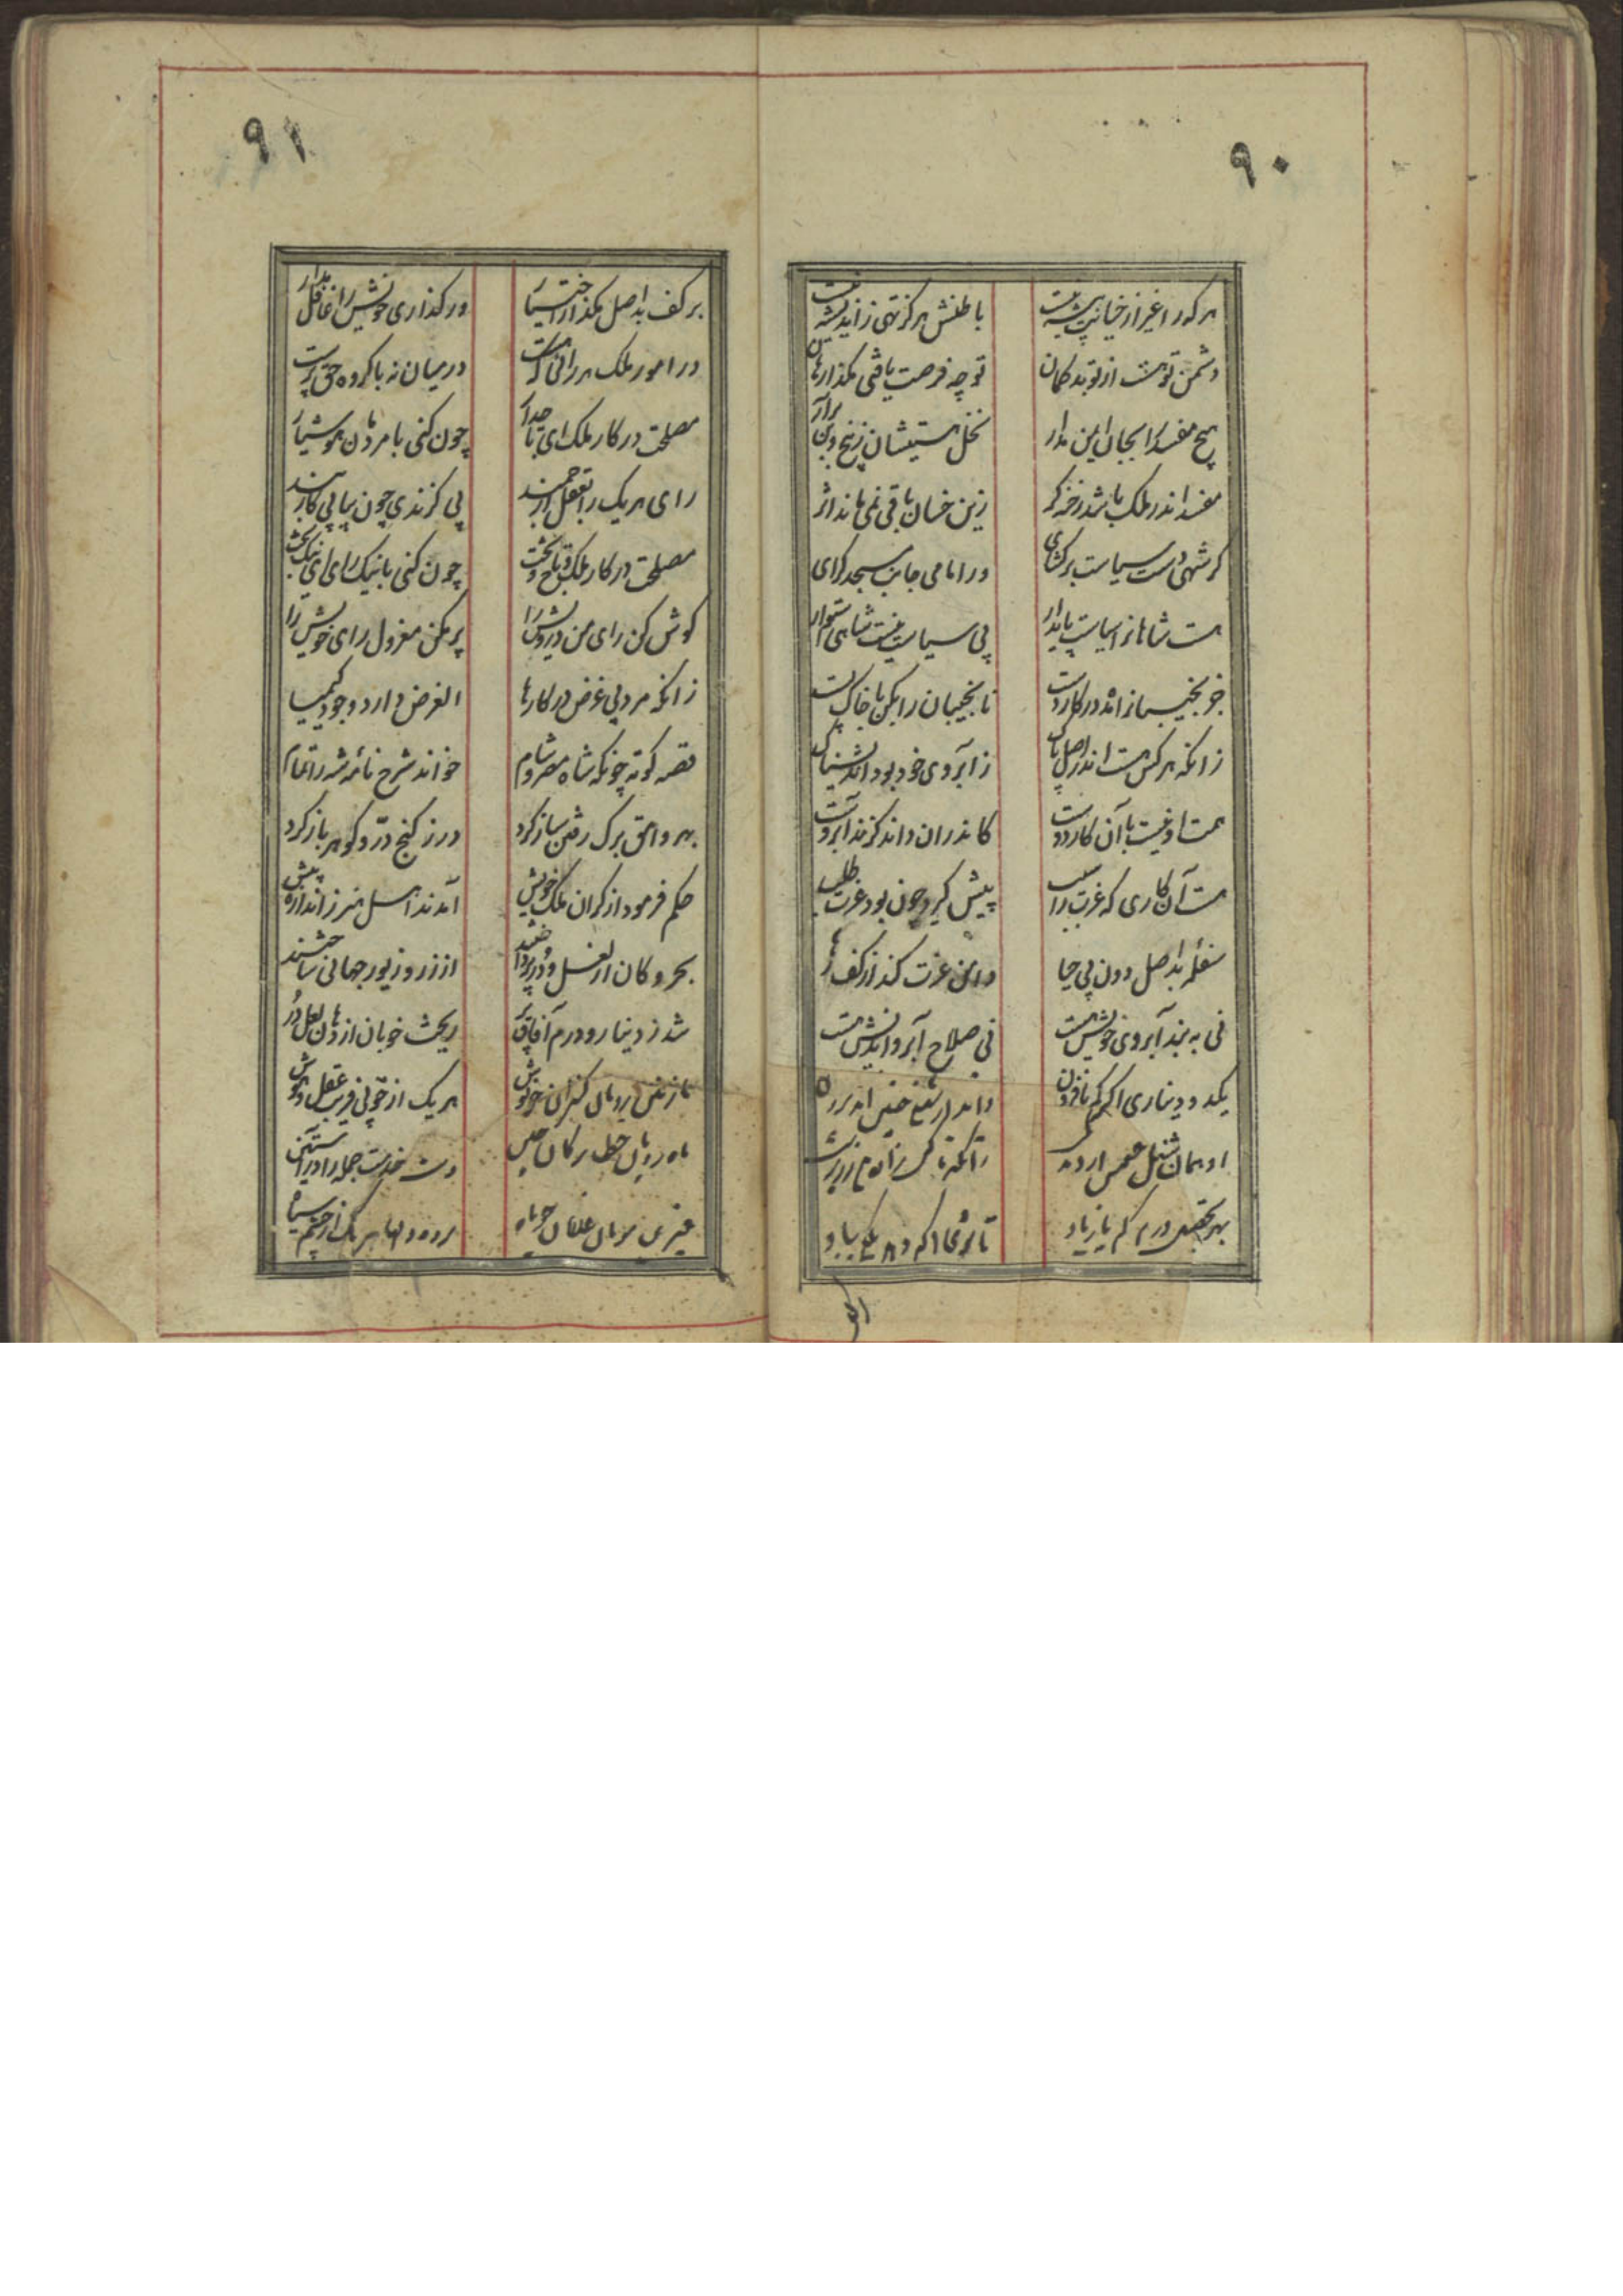 ٩٠
هر که را غیر از خیانت پیشه نیست
باطنش هرگز تهی ز اندیشه نیست
دشمن تو هست از تو بد گمان
تو چه فرصت یافتی مگذار هان
هیچ مفسد را بجان ایمن مدار
نخل هستیشان ز بیخ و بن برآر
مفسد اندر ملک باشد رخنه گر
زین خسان باقی نمی ماند اثر
گر شهی دست سیاست برگشای
ور امامی جانب مسجد گرای
هست شاهانرا سیاست پایدار
بی سیاست نیست شاهی استوار
جز نجیبانرا مده در کار دست
نانجیبان را بکن با خاک پست
زانکه هر کس هست اندر اصل پاک
ز آبروی خود بود اندیشناک
همت او نیست با آن کار دوست
کاندران داند گزند آبروست
هست آن کاری که عزت را سبب
پیش گیرد چون بود عزت طلب
سفله بد اصل دون بی حیا
دامن عزت کند از کف رها
نی به بند آبروی خویش هست
نی صلاح آبرو اندیش هست
یکدو دیناری اگر کم یا فزون
او همان شغل
بهر تحصیل درم کم یا زیاد
٩١
بر کف بد اصل مگذار اختیار
ور گذاری خویش را غافل مدار
در امور ملک هر رائی که هست
در میان نه با گروه حق پرست
مصلحت در کار ملک ای تاجدار
چون کنی با مردمان هوشیار
رای هر یک را بعقل ارجمند
بی گزندی چون بیابی کار بند
مصلحت در کار ملک و تاج و تخت
چون کنی با نیک رای ای نیکبخت
گوش کن رای من درویش را
پر مکن معزول رای خویش را
زانکه مرد بی غرض در کارها
الغرض دارد وجود کیمیا
قصه کوته چونکه شاه مصر و شام
خواند شرح نامه شه را تمام
بهر وامق برگ رفتن ساز کرد
در ز گنج در و گوهر باز کرد
حکم فرمود از کران ملک خویش
آمدند اهل هنر ز اندازه پیش
بحر و کان از لعل و در پرداختند
از زر و زیور جهانی ساختند
شد ز دینار و درم آفاق پر
ریخت خوبان از دهان لعل و در
نازنین رویان کنیزان خموش
هر یک از خوبی فریب عقل و هوش
ماه رویان
دست خدمت جمله را در آستین